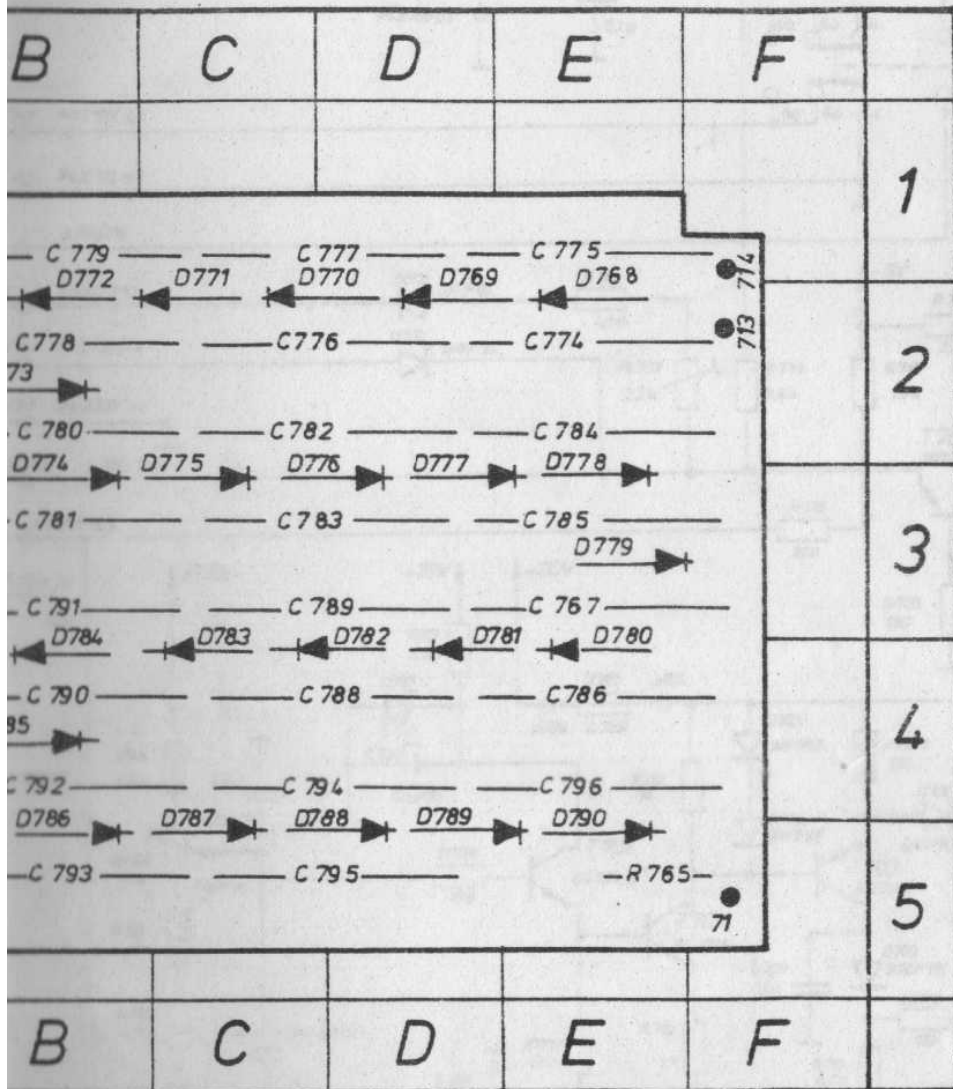 B C D E F
1
C 779 C 777 C 775
D772 D771 D770 D769 D768 714
C 778 C 776 C 774 713
2
73
C 780 C 782 C 784
D774 D775 D776 D777 D778
C 781 C 783 C 785
3
D779
C 791 C 789 C 767
D784 D783 D782 D781 D780
C 790 C 788 C 786
4
85
C 792 C 794 C 796
D786 D787 D788 D789 D790
C 793 C 795 R 765
5
71
B C D E F